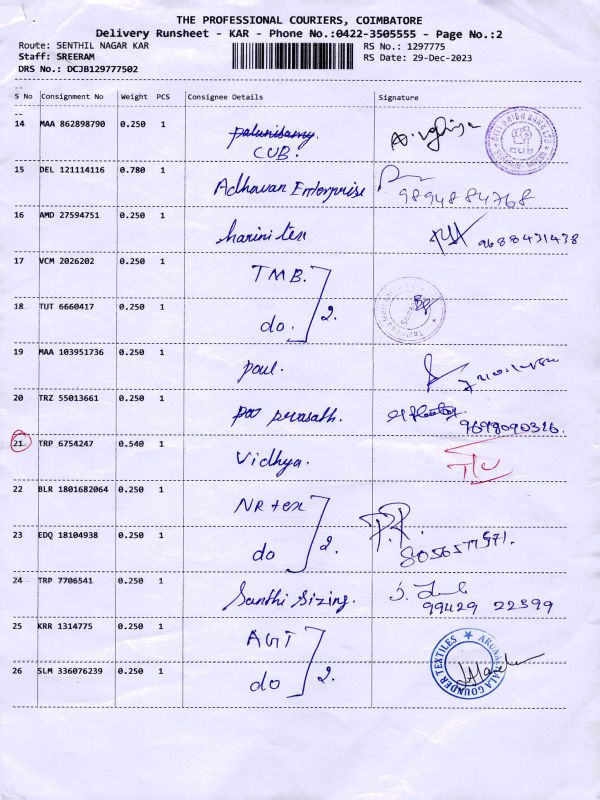 THE PROFESSIONAL COURIERS, COIMBATORE
Delivery Runsheet - KAR - Phone No.:0422-3505555 - Page No.:2
Route: SENTHIL NAGAR KAR RS No.: 1297775
Staff: SREERAM RS Date: 29-Dec-2023
DRS No.: DCJB129777502
S No Consignment No Weight PCS Consignee Details Signature
14 MAA 862898790 0.250 1 palanisamy.
CUB.
CUB
15 DEL 121114116 0.780 1 Adhavan Enterprise 9894884768
16 AMD 27594751 0.250 1 harini tex 9688431438
17 VCM 2026202 0.250 1 TMB.
18 TUT 6660417 0.250 1 do. 2.
19 MAA 103951736 0.250 1 poul.
20 TRZ 55013661 0.250 1 prasath. 9698090326.
21 TRP 6754247 0.540 1 Vidhya.
22 BLR 1801682064 0.250 1 NR tex
23 EDQ 18104938 0.250 1 do 2. 8056577571.
24 TRP 7706541 0.250 1 Santhi Sizing. 99429 22399
25 KRR 1314775 0.250 1 AGT
26 SLM 336076239 0.250 1 do 2.
GOUNDER TEXTILES